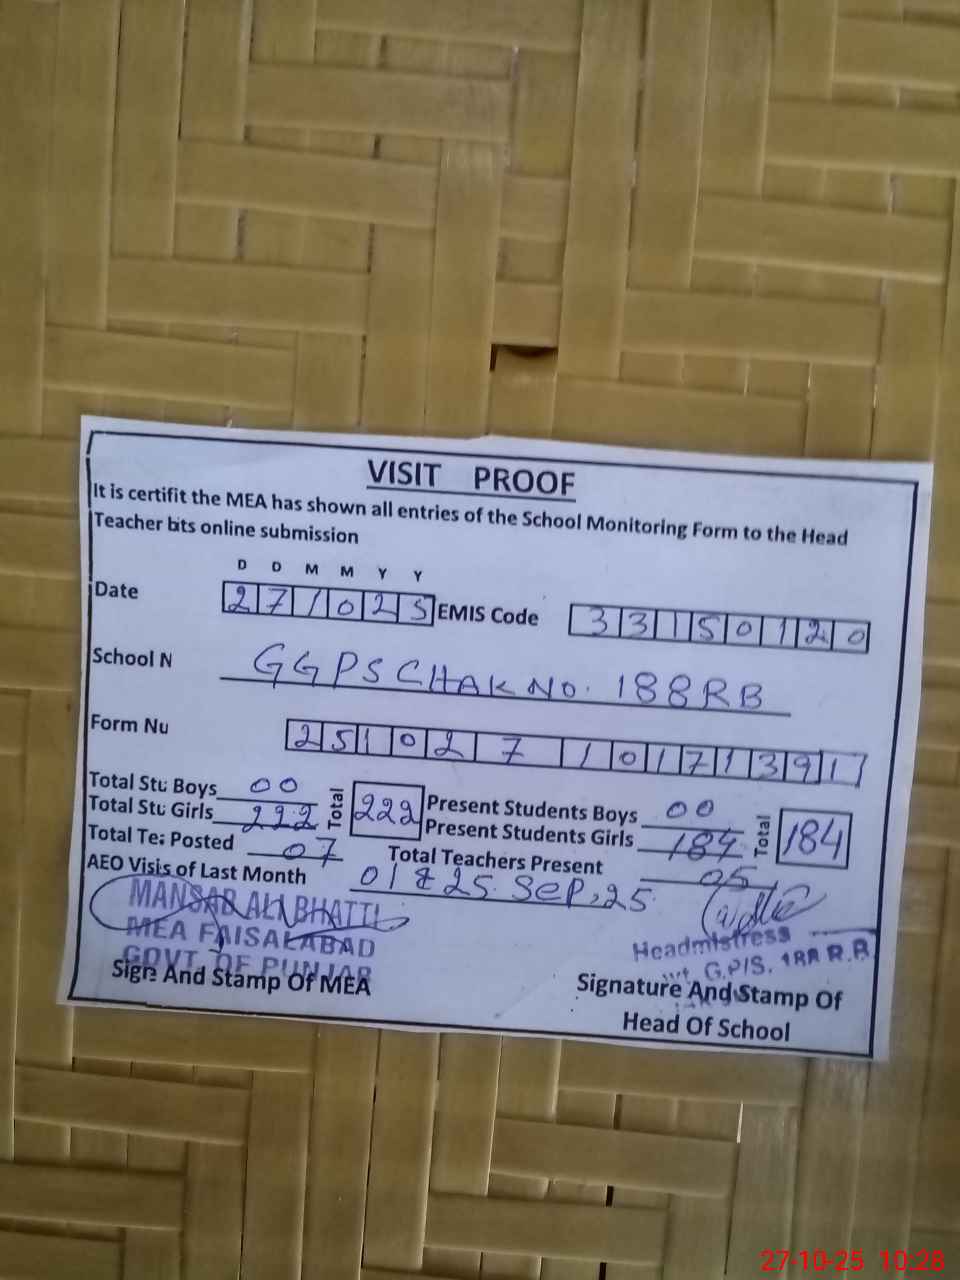 VISIT PROOF
It is certifit the MEA has shown all entries of the School Monitoring Form to the Head
Teacher bits online submission
D D M M Y Y
Date 271025 EMIS Code 33150120
School N GGPS CHAK NO. 188RB
Form Nu 251027 10171391
Total Stu Boys 00 Total 222 Present Students Boys 00 Total 184
Total Stu Girls 222 Present Students Girls 184
Total Te: Posted 07 Total Teachers Present 05
AEO Visis of Last Month 01 & 25 Sep, 25
MANSAB ALI BHATTI
MEA FAISALABAD
GOVT. OF PUNJAB
Sign: And Stamp Of MEA
Headmistress
G.P/S. 188 R.B
Signature And Stamp Of
Head Of School
27-10-25 10:28